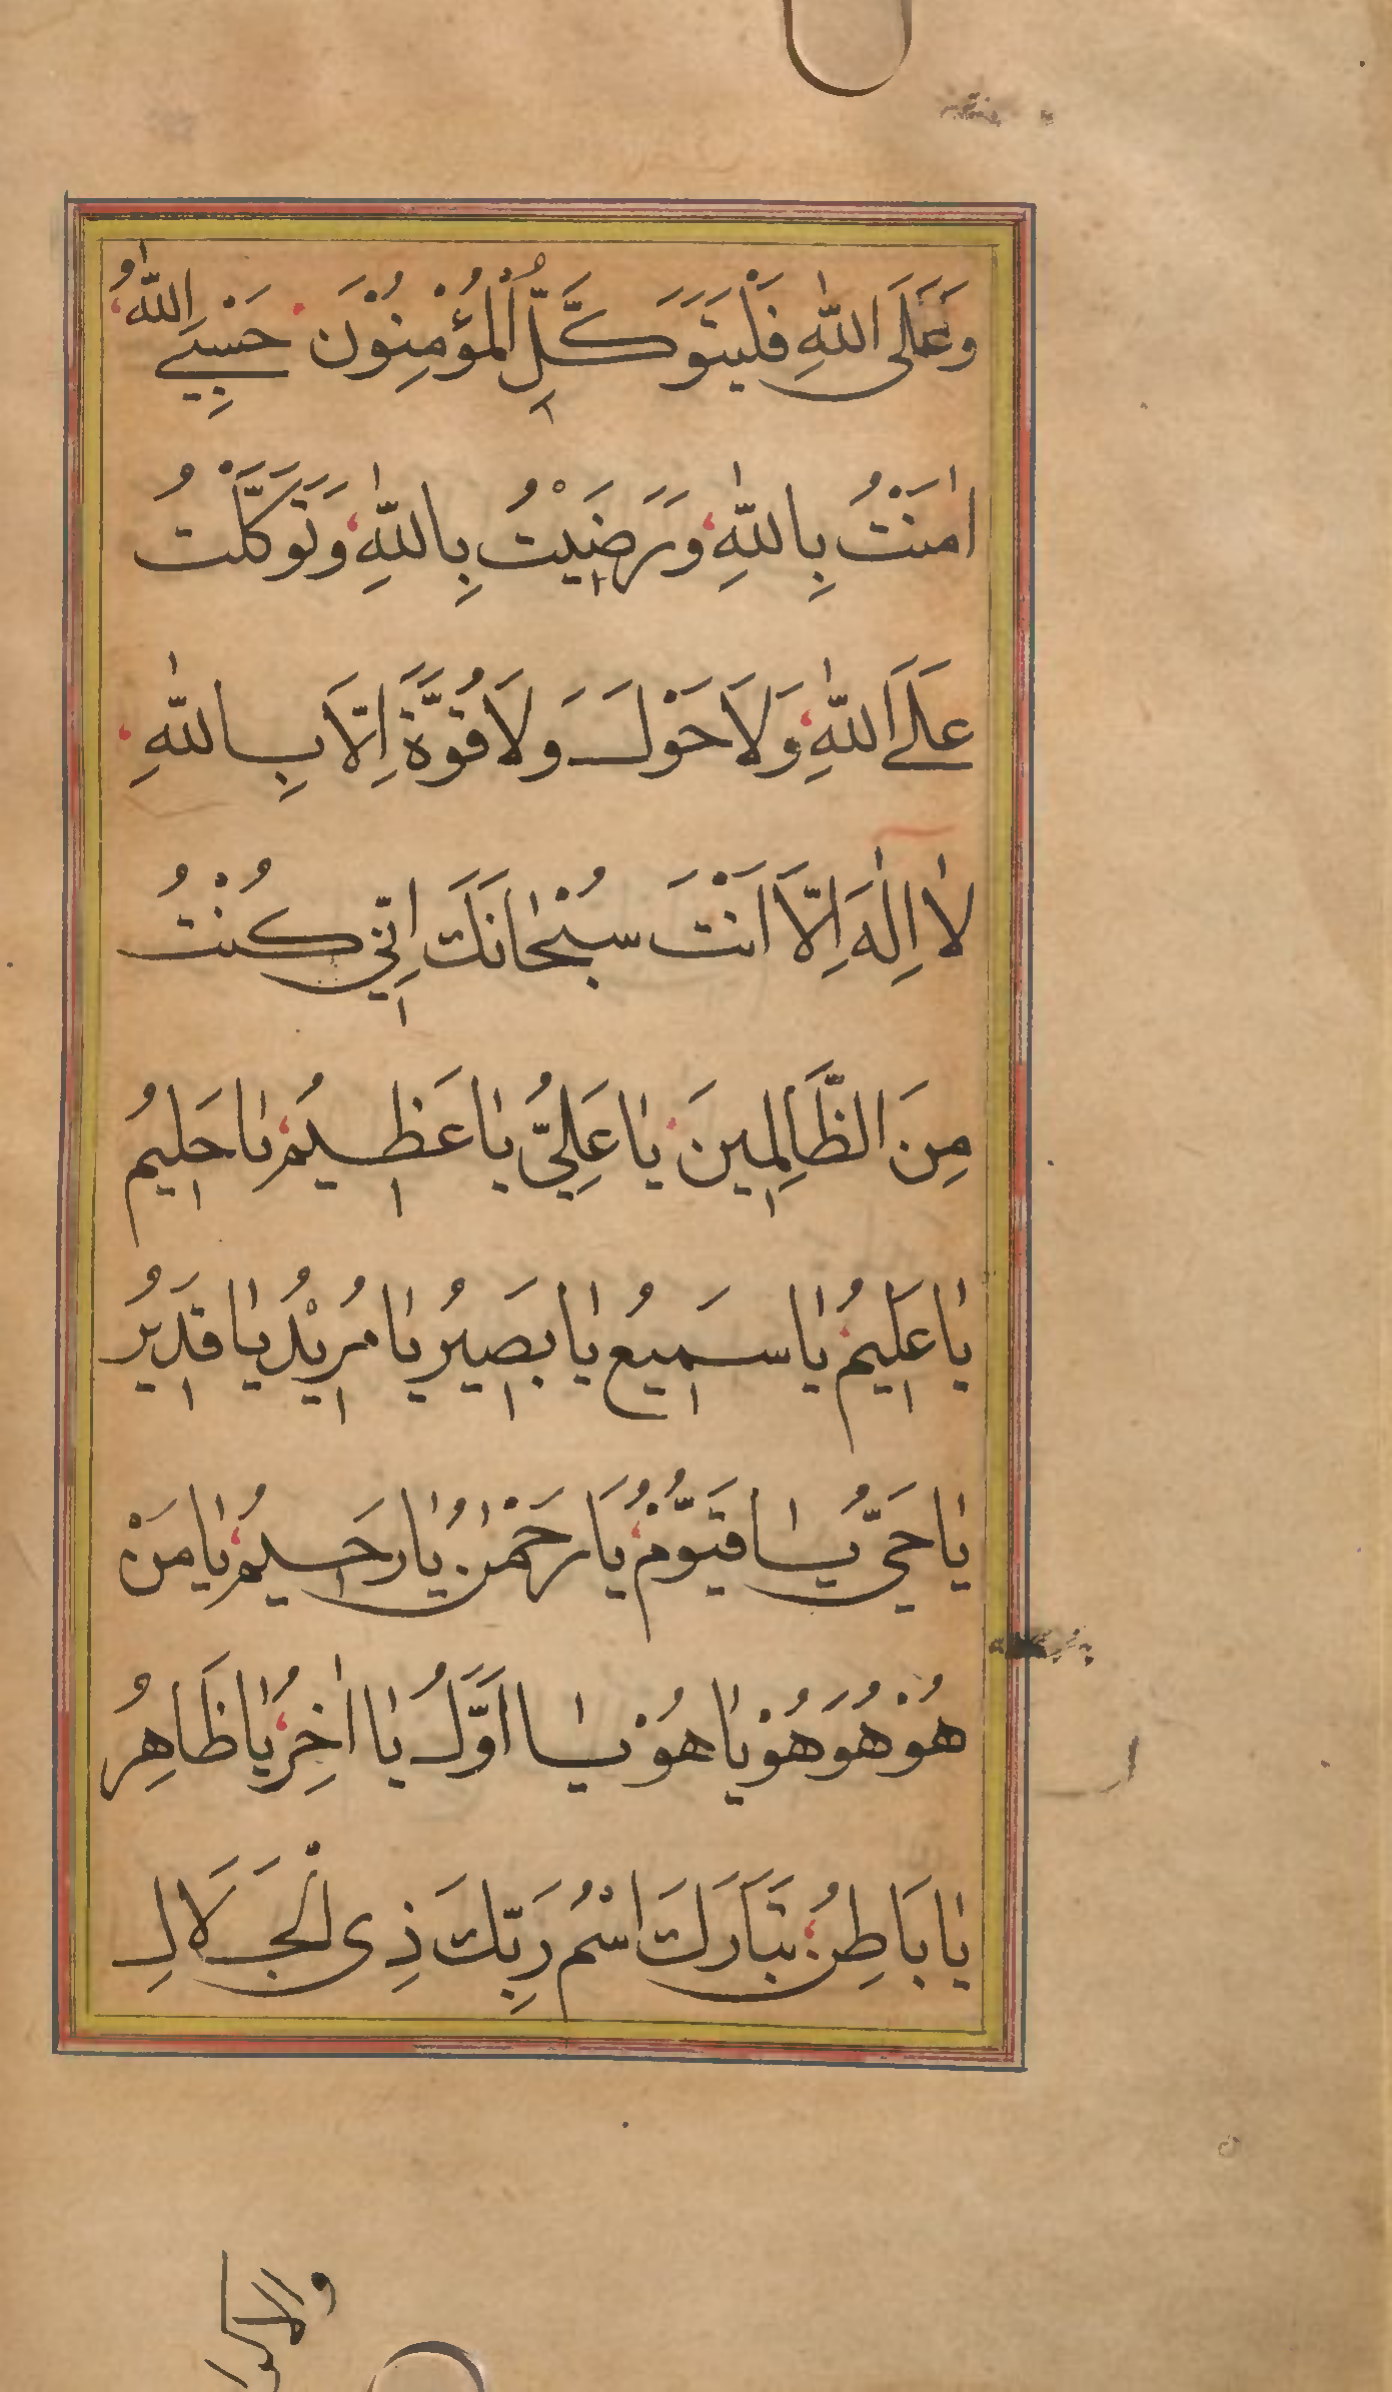 وَعَلَى اللّٰهِ فَلْيَتَوَكَّلِ الْمُؤْمِنُوْنَ حَسْبِيَ اللّٰهُ
اٰمَنْتُ بِاللّٰهِ وَرَضِيْتُ بِاللّٰهِ وَتَوَكَّلْتُ
عَلَى اللّٰهِ وَلَا حَوْلَ وَلَا قُوَّةَ اِلَّا بِاللّٰهِ
لَا اِلٰهَ اِلَّا اَنْتَ سُبْحَانَكَ اِنِّي كُنْتُ
مِنَ الظَّالِمِينَ يَا عَلِيُّ يَا عَظِيمُ يَا حَلِيمُ
يَا عَلِيمُ يَا سَمِيعُ يَا بَصِيرُ يَا مُرِيْدُ يَا قَدِيرُ
يَا حَيُّ يَا قَيُّوْمُ يَا رَحْمٰنُ يَا رَحِيمُ يَا مَنْ
هُوْ هُوَ هُوْ يَا هُوْ يَا اَوَّلُ يَا اٰخِرُ يَا ظَاهِرُ
يَا بَاطِنُ تَبَارَكَ اسْمُ رَبِّكَ ذِى الْجَلَالِ
والاكرا